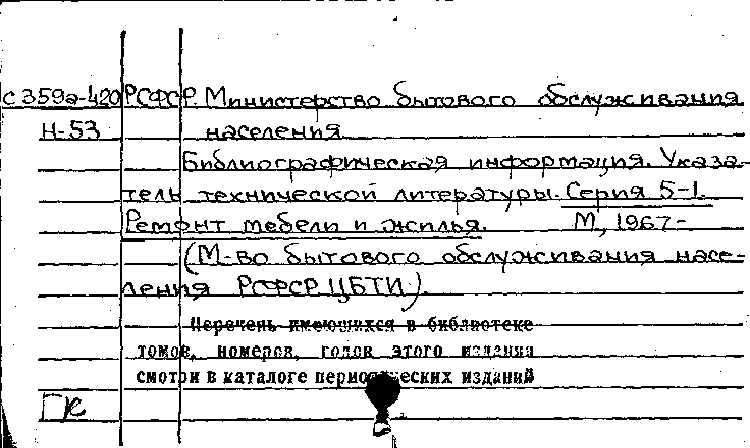 С359а-420 РСФСР. Министерство бытового обслуживания
Н-53 населения
Библиографическая информация. Указа-
тель технической литературы. Серия 5-1.
Ремонт мебели и жилья. М., 1967-
(М-во бытового обслуживания насе-
ления РСФСР. ЦБТИ).
Перечень имеющихся в библиотеке
томов, номеров, годов этого издания
смотри в каталоге периодических изданий
ГК